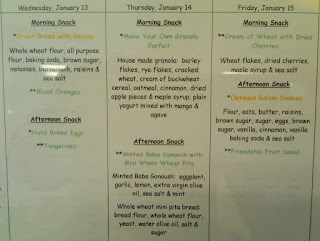 Wednesday, January 13
Morning Snack
*Brown Bread with Raisins
Whole wheat flour, all purpose
flour, baking soda, brown sugar,
molasses, buttermilk, raisins &
sea salt
**Blood Oranges
Afternoon Snack
*Hard Boiled Eggs
**Tangerines
Thursday, January 14
Morning Snack
*Make Your Own Granola
Parfait
House made granola: barley
flakes, rye flakes, cracked
wheat, cream of buckwheat
cereal, oatmeal, cinnamon, dried
apple pieces & maple syrup; plain
yogurt mixed with mango &
agave
Afternoon Snack
*Minted Baba Ganoush with
Mini Whole Wheat Pita
Minted Baba Ganoush: eggplant,
garlic, lemon, extra virgin olive
oil, sea salt & mint
Whole wheat mini pita bread:
bread flour, whole wheat flour,
yeast, water olive oil, salt &
sugar
Friday, January 15
Morning Snack
**Cream of Wheat with Dried
Cherries
Wheat flakes, dried cherries,
maple syrup & sea salt
Afternoon Snack
*Oatmeal Raisin Cookies
Flour, oats, butter, raisins,
brown sugar, sugar, eggs, brown
sugar, vanilla, cinnamon, vanilla
baking soda & sea salt
**Friendship Fruit Salad